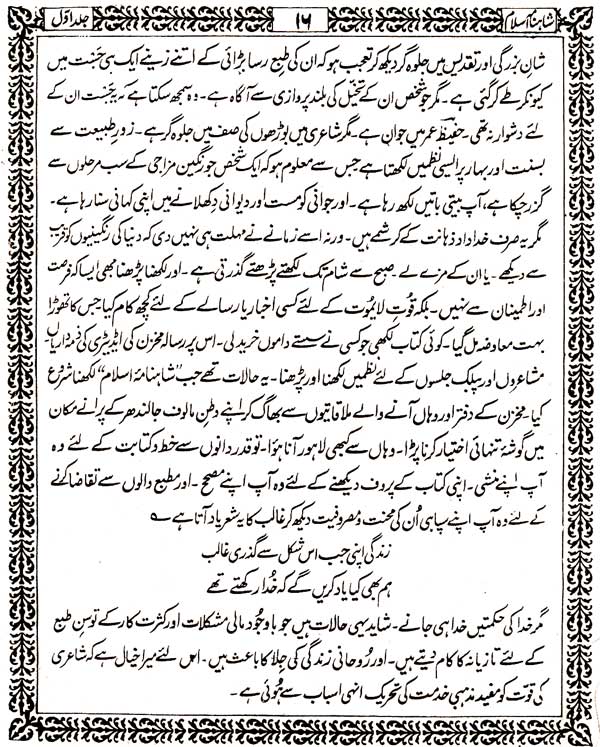 شاہنامۂ اسلام
۱۶
جلد اوّل
شانِ بزرگی اور تقدیس میں جلوہ گر دیکھ کر تعجب ہو کہ ان کی طبع رسا بڑائی کے اتنے زینے ایک ہی جَست میں
کیونکر طے کر گئی ہے۔ مگر جو شخص ان کے تخیل کی بلند پروازی سے آگاہ ہے۔ وہ سمجھ سکتا ہے کہ یہ جَست ان کے
لئے دشوار نہ تھی۔ حفیظؔ عمر میں جوان ہے۔ مگر شاعری میں بوڑھوں کی صف میں جلوہ گر ہے۔ زورِ طبیعت سے
بسنت اور بہار پر ایسی نظمیں لکھتا ہے جس سے معلوم ہو کہ ایک شخص جو رنگین مزاجی کے سب مرحلوں سے
گزر چکا ہے، آپ بیتی باتیں لکھ رہا ہے۔ اور جوانی کو مست اور دیوانی دکھلانے میں اپنی کہانی سنا رہا ہے۔
مگر یہ صرف خداداد ذہانت کے کرشمے ہیں۔ ورنہ اسے زمانے نے مہلت ہی نہیں دی کہ دنیا کی رنگینیوں کو قریب
سے دیکھے۔ یا ان کے مزے لے۔ صبح سے شام تک لکھتے پڑھتے گذرتی ہے۔ اور لکھنا پڑھنا بھی ایسا کہ فرصت
اور اطمینان سے نہیں۔ بلکہ قُوتِ لایموت کے لئے کسی اخبار یا رسالے کے لئے کچھ کام کیا جس کا تھوڑا
بہت معاوضہ مل گیا۔ کوئی کتاب لکھی جو کسی نے سستے داموں خرید لی۔ اس پر رسالہ مخزن کی ایڈیٹری کی ذمہ داریاں
مشاعروں اور پبلک جلسوں کے لئے نظمیں لکھنا اور پڑھنا۔ یہ حالات تھے جب ”شاہنامۂ اسلام“ لکھنا شروع
کیا۔ مخزن کے دفتر اور وہاں آنے والے ملاقاتیوں سے بھاگ کر اپنے وطنِ مالوف جالندھر کے پرانے مکان
میں گوشۂ تنہائی اختیار کرنا پڑا۔ وہاں سے کبھی لاہور آنا ہوا۔ تو قدر دانوں سے خط و کتابت کے لئے وہ
آپ اپنے منشی۔ اپنی کتاب کے پروف دیکھنے کے لئے وہ آپ اپنے مصحح۔ اور مطبع والوں سے تقاضا کرنے
کے لئے وہ آپ اپنے سپاہی اُن کی محنت و مصروفیت دیکھ کر غالب کا یہ شعر یاد آتا ہے؎
زندگی اپنی جب اس شکل سے گذری غالب
ہم بھی کیا یاد کریں گے کہ خُدا رکھتے تھے
مگر خدا کی حکمتیں خدا ہی جانے۔ شاید یہی حالات ہیں جو باوجود مالی مشکلات اور کثرتِ کار کے توسنِ طبع
کے لئے تازیانہ کا کام دیتے ہیں۔ اور رُوحانی زندگی کی جلا کا باعث ہیں۔ اس لئے میرا خیال ہے کہ شاعری
کی قوت کو مفید مذہبی خدمت کی تحریک انہی اسباب سے ہُوئی ہے۔